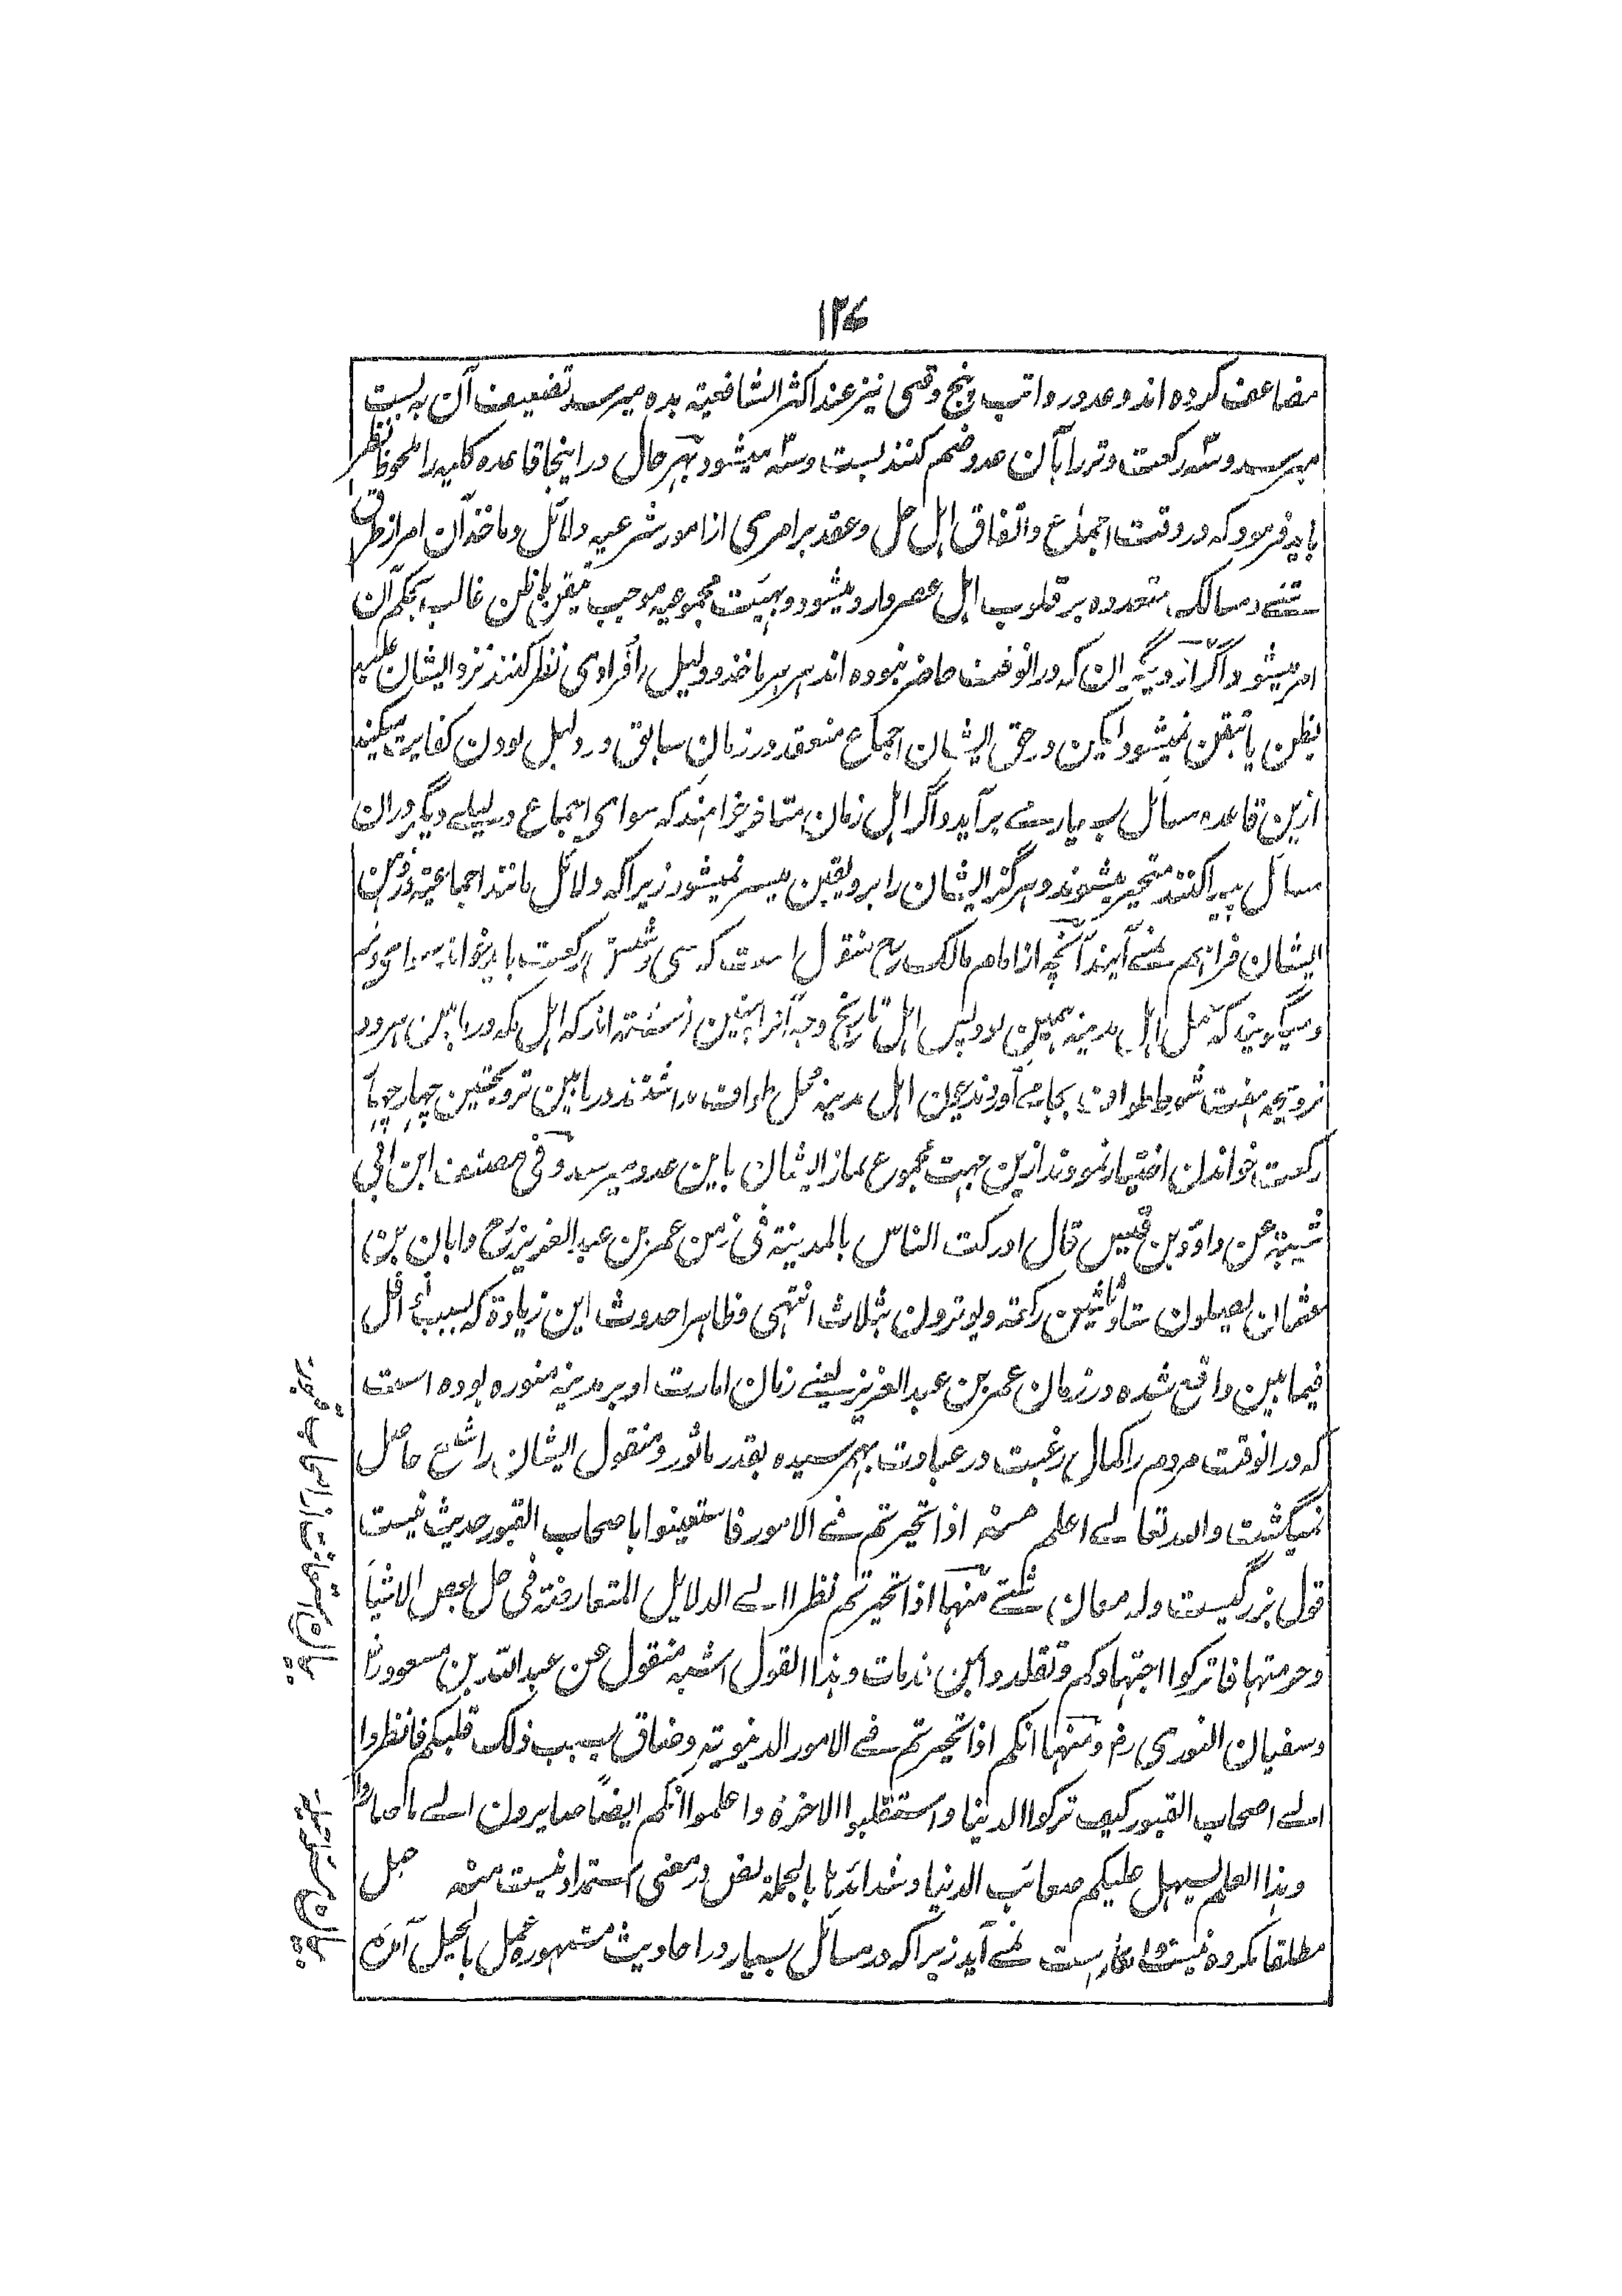 ۱۲۷
مضاعف کرده اند و عدد رواتب پنج وقتی نیز عند اکثر الشافعیة بده میرسد تضعیف آن به بست
میرسد و سه رکعت وتر را بآن عدد ضم کنند بست و سه میشود بهرحال در اینجا قاعده کلیه را ملحوظ نظر
باید فرمود که در وقت اجماع و اتفاق اهل حل و عقد بر امری از امور شرعیه دلائل و ماخذ آن امر از طرق
شتے و مسالک متعدده بر قلوب اهل عصر وارد میشود و بهیئت مجموعیه موجب تیقن یا ظن غالب بحکم آن
امر میشود و اگر از دیگران که در انوقت حاضر نبوده اند هر هر ماخذ و دلیل را فرادی نظر کنند نزد ایشان غلبه
بظن یا تیقن نمیشود لیکن در حق ایشان اجماع منعقد در زمان سابق در دلیل بودن کفایت میکند
ازین قاعده مسائل بسیارے برآید و اگر اهل زمان متاخر خواهند که سوای اجماع دلیلے دیگر دران
مسائل پیدا کنند متحیر میشوند و هرگز ایشان را برد یقین میسر نمیشود زیرا که دلائل مانند اجماعیه در ذهن
ایشان فراهم نمے آیند آنچه از امام مالک رح منقول است که سی و شش رکعت باید خواند سوای وتر
و میگویند که عمل اهل مدینه همین بود پس اهل تاریخ وجه آنرا چنین نوشته اند که اهل مکه در مابین هر دو
ترویحه هفت شوط طواف بجا مے آوردند چون اهل مدینه محل طواف نداشتند در مابین ترویحتین چهار چهار
رکعت خواندن اختیار نمودند ازین جهت مجموع نماز ایشان باین عدد میرسد و فی مصنف ابن ابی
شیبة عن داؤد بن قیس قال ادرکت الناس بالمدینة فی زمن عمر بن عبد العزیز رح و ابان بن
عثمان یصلون ستا و ثلاثین رکعة و یوترون بثلاث انتهی و ظاهرا حدوث این زیادة که بسبب
فیمابین واقع شده در زمان عمر بن عبد العزیز یعنے زمان امارت او بر مدینه منوره بوده است
که در انوقت مردم را کمال رغبت در عبادت بهم رسیده بقدر ماثور و منقول ایشان را حاصل
نمیگشت والله تعالے اعلم مسئله اذا تحیرتم فے الامور فاستعینوا باصحاب القبور حدیث نیست
قول بزرگیست وله معان شتے منها اذا تحیرتم نظرا الے الدلایل المتعارضة فی حل بعض الاشیاء
و حرمتها فاترکوا اجتهادکم و تقلدوا من قدمات و هذا القول اشبه منقول عن عبد الله بن مسعود رض
و سفیان الثوری رض و منها انکم اذا تحیرتم فے الامور الدنیویة و ضاق بسبب ذلک قلبکم فانظروا
الے اصحاب القبور کیف ترکوا الدنیا و استقبلوا الاخرة و اعلموا انکم ایضا صایرون الے ما صاروا
و هذا العلم لیسهل علیکم مصائب الدنیا و شدائدها بالجملة نص در معنی استمداد نیست مسئله حیل
مطلقا مکروه نیست و راست نمے آید زیرا که در مسائل بسیار و در احادیث مشهوره عمل بالحیل آمده
بیان استعانت از اصحاب قبور
بیان مسئله حیل